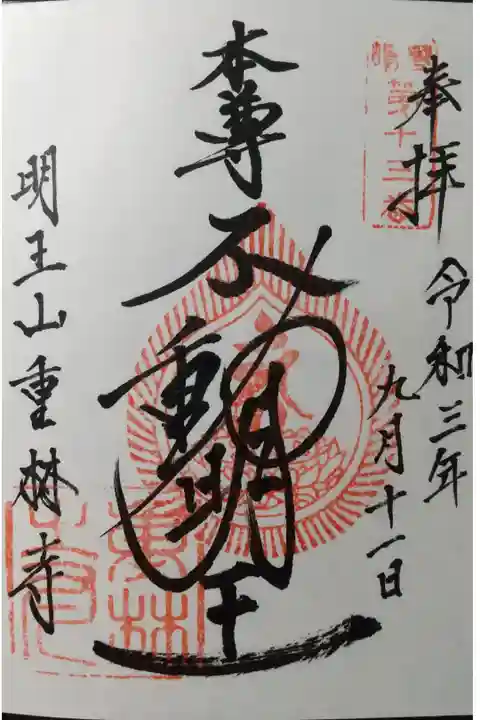 奉拝
第十三番
令和三年
九月十一日
本尊
不動明王
明王山重林寺